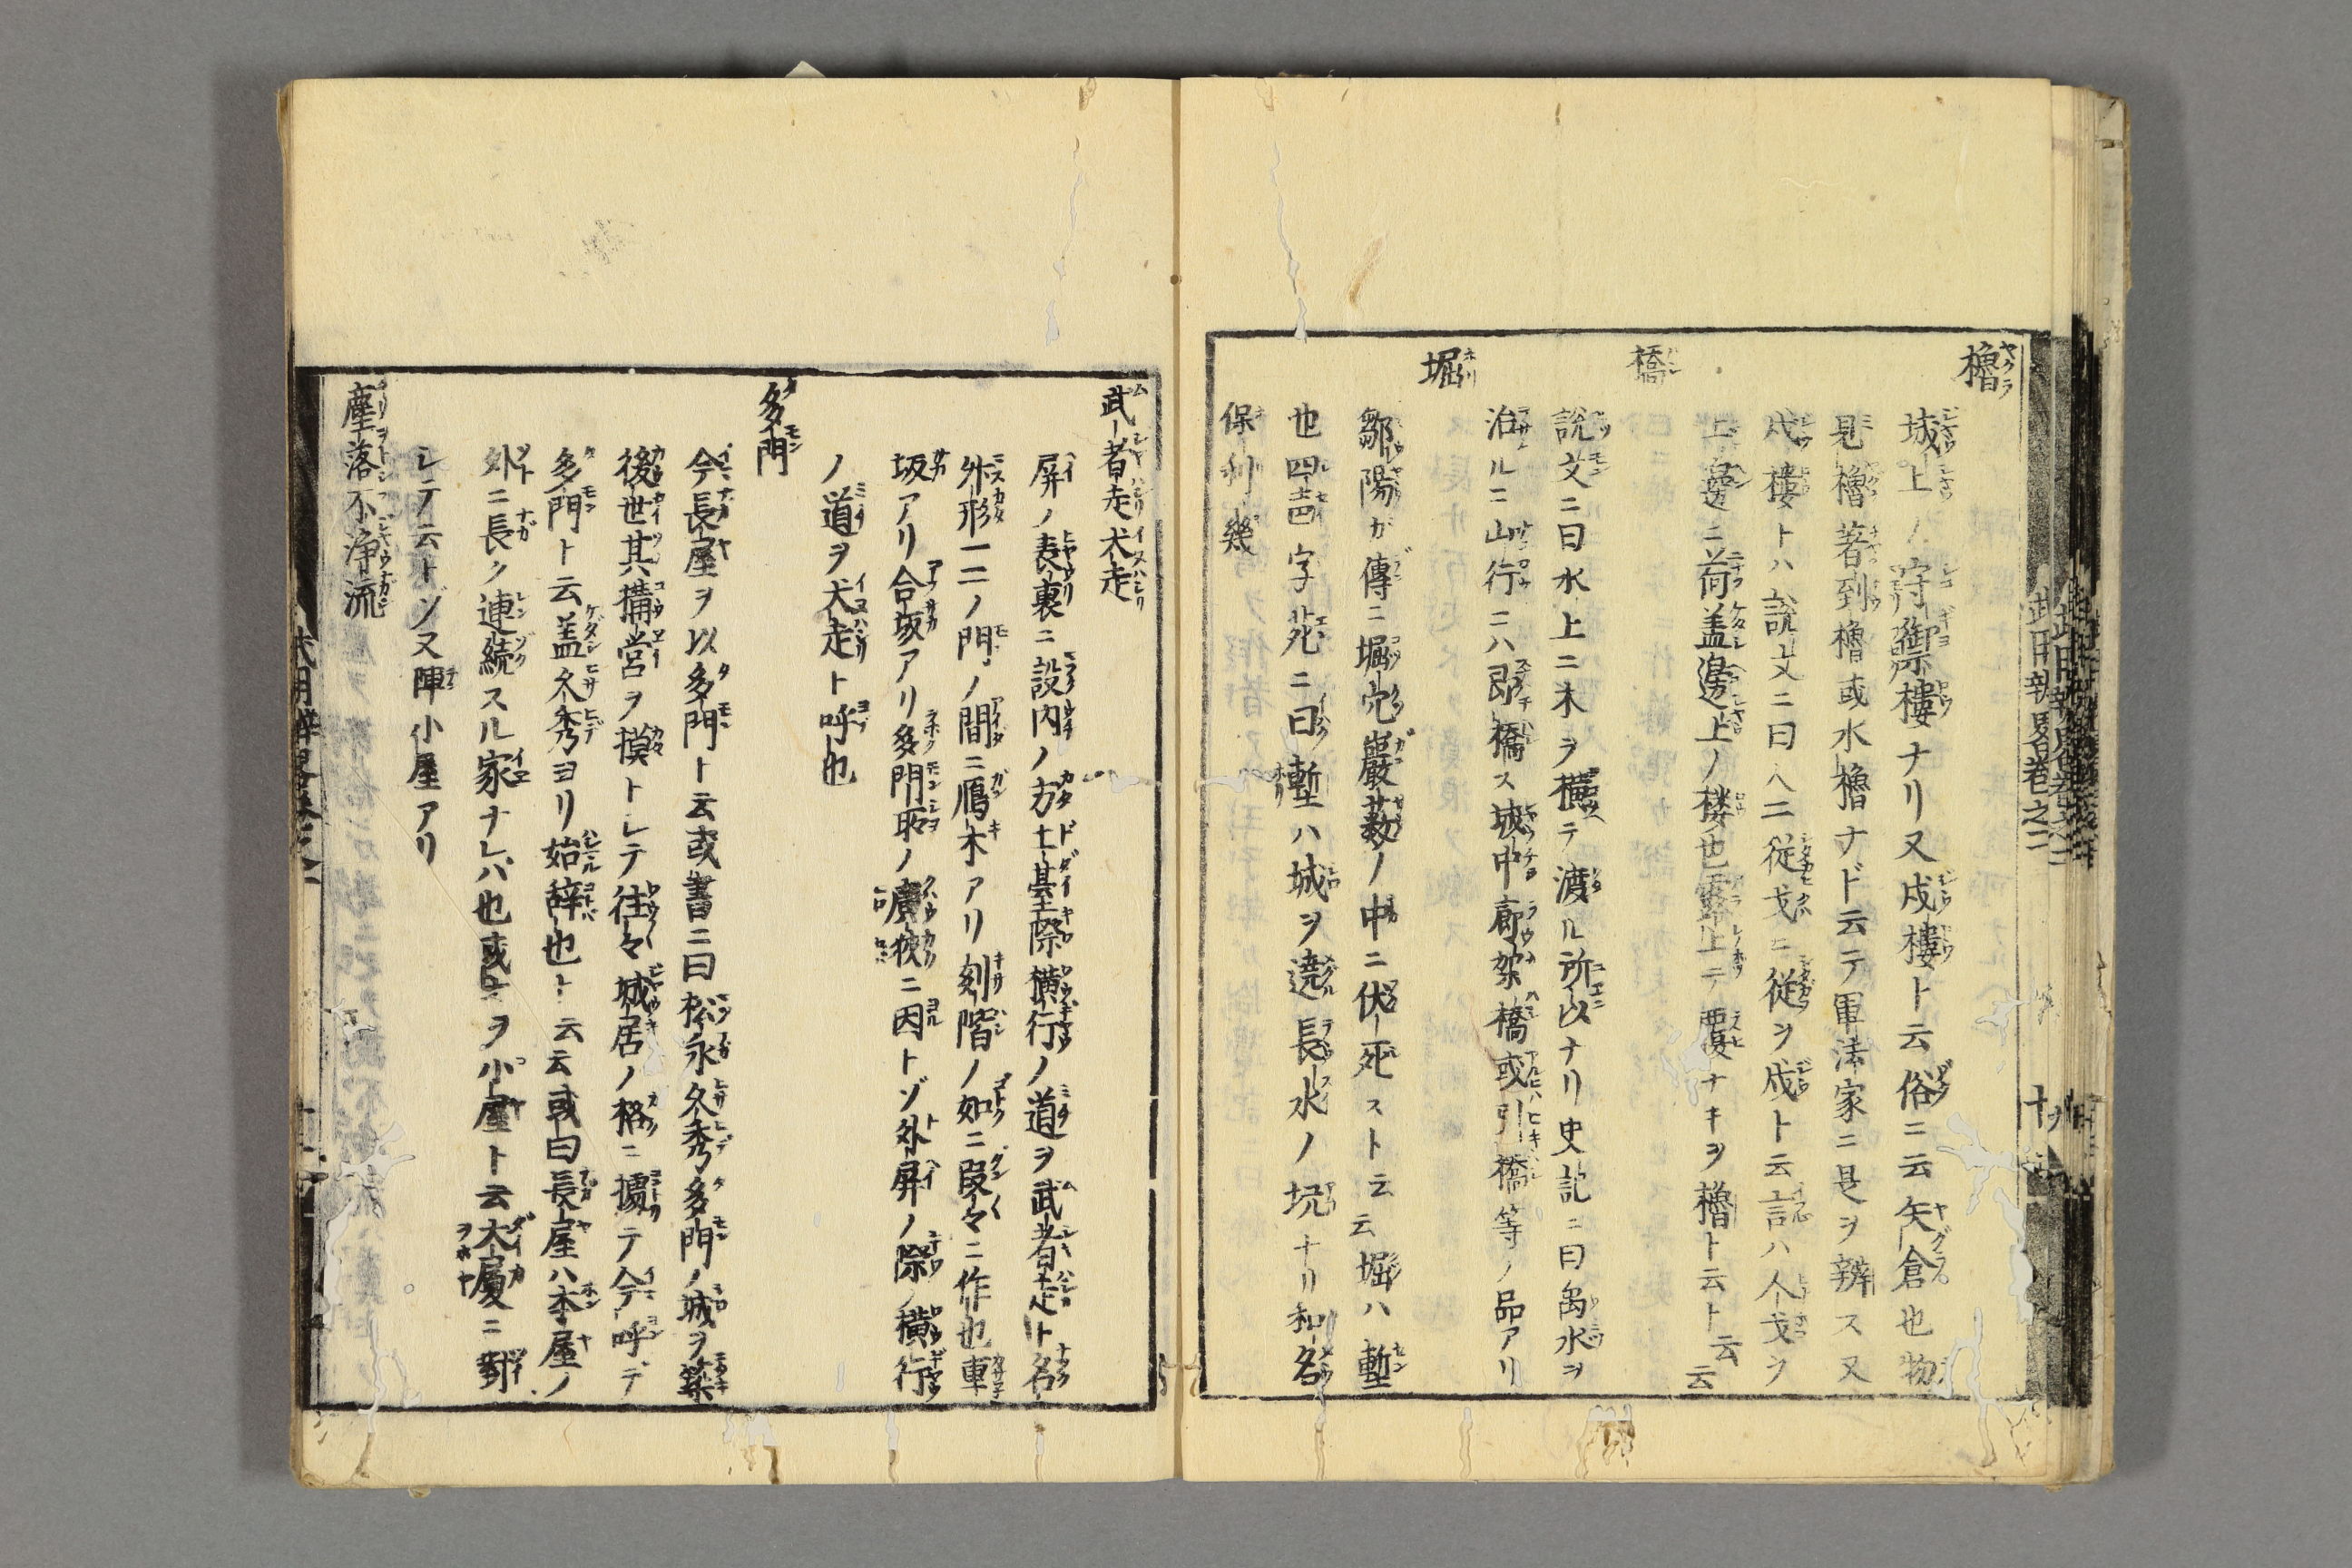 櫓
城上ノ守禦樓ナリ又戍樓ト云俗ニ云矢倉也物
見櫓着到櫓或水櫓ナド云テ軍法家ニ是ヲ辨ス又
戍樓トハ說文ニ曰人ニ従戈ニ従ヲ戍ト云言ハ人戈ヲ
荷盖邊上ノ楼也露上テ覆ナキヲ櫓ト云ト云云
橋
說文ニ曰水上ニ木ヲ横テ渡ル所以ナリ史記ニ曰禹水ヲ
治ルニ山行ニハ即橋ス城中廊架橋或引橋等ノ品アリ
堀
鄒陽が傳ニ堀穴巖薮ノ中ニ伏死スト云云堀ハ塹
也四声字苑ニ曰塹ハ城ヲ遶長水ノ坑ナリ和名
保利幾
武用辨畧卷之二
十
武者走犬走
屏ノ表裏ニ設内ノ方土基際横行ノ道ヲ武者走ト名
外形一二ノ門ノ間ニ鴈木アリ刻階ノ如ニ段々ニ作也車
坂アリ合坂アリ多門所ノ廣狹ニ因トゾ外屏ノ際ノ横行
ノ道ヲ犬走ト呼也
多門
今長屋ヲ以多門ト云或書ニ曰松永久秀多門ノ城ヲ築
後世其搆営ヲ摸トレテ往々城居ノ格ニ據テ今呼テ
多門ト云盖久秀ヨリ始辞也ト云云或曰長屋ハ本屋ノ
外ニ長ク連続スル家ナレバ也或ハヲ小屋ト云大厦ニ對
レテ云トゾ又陣小屋アリ
塵落不浄流
武用辨畧卷之二